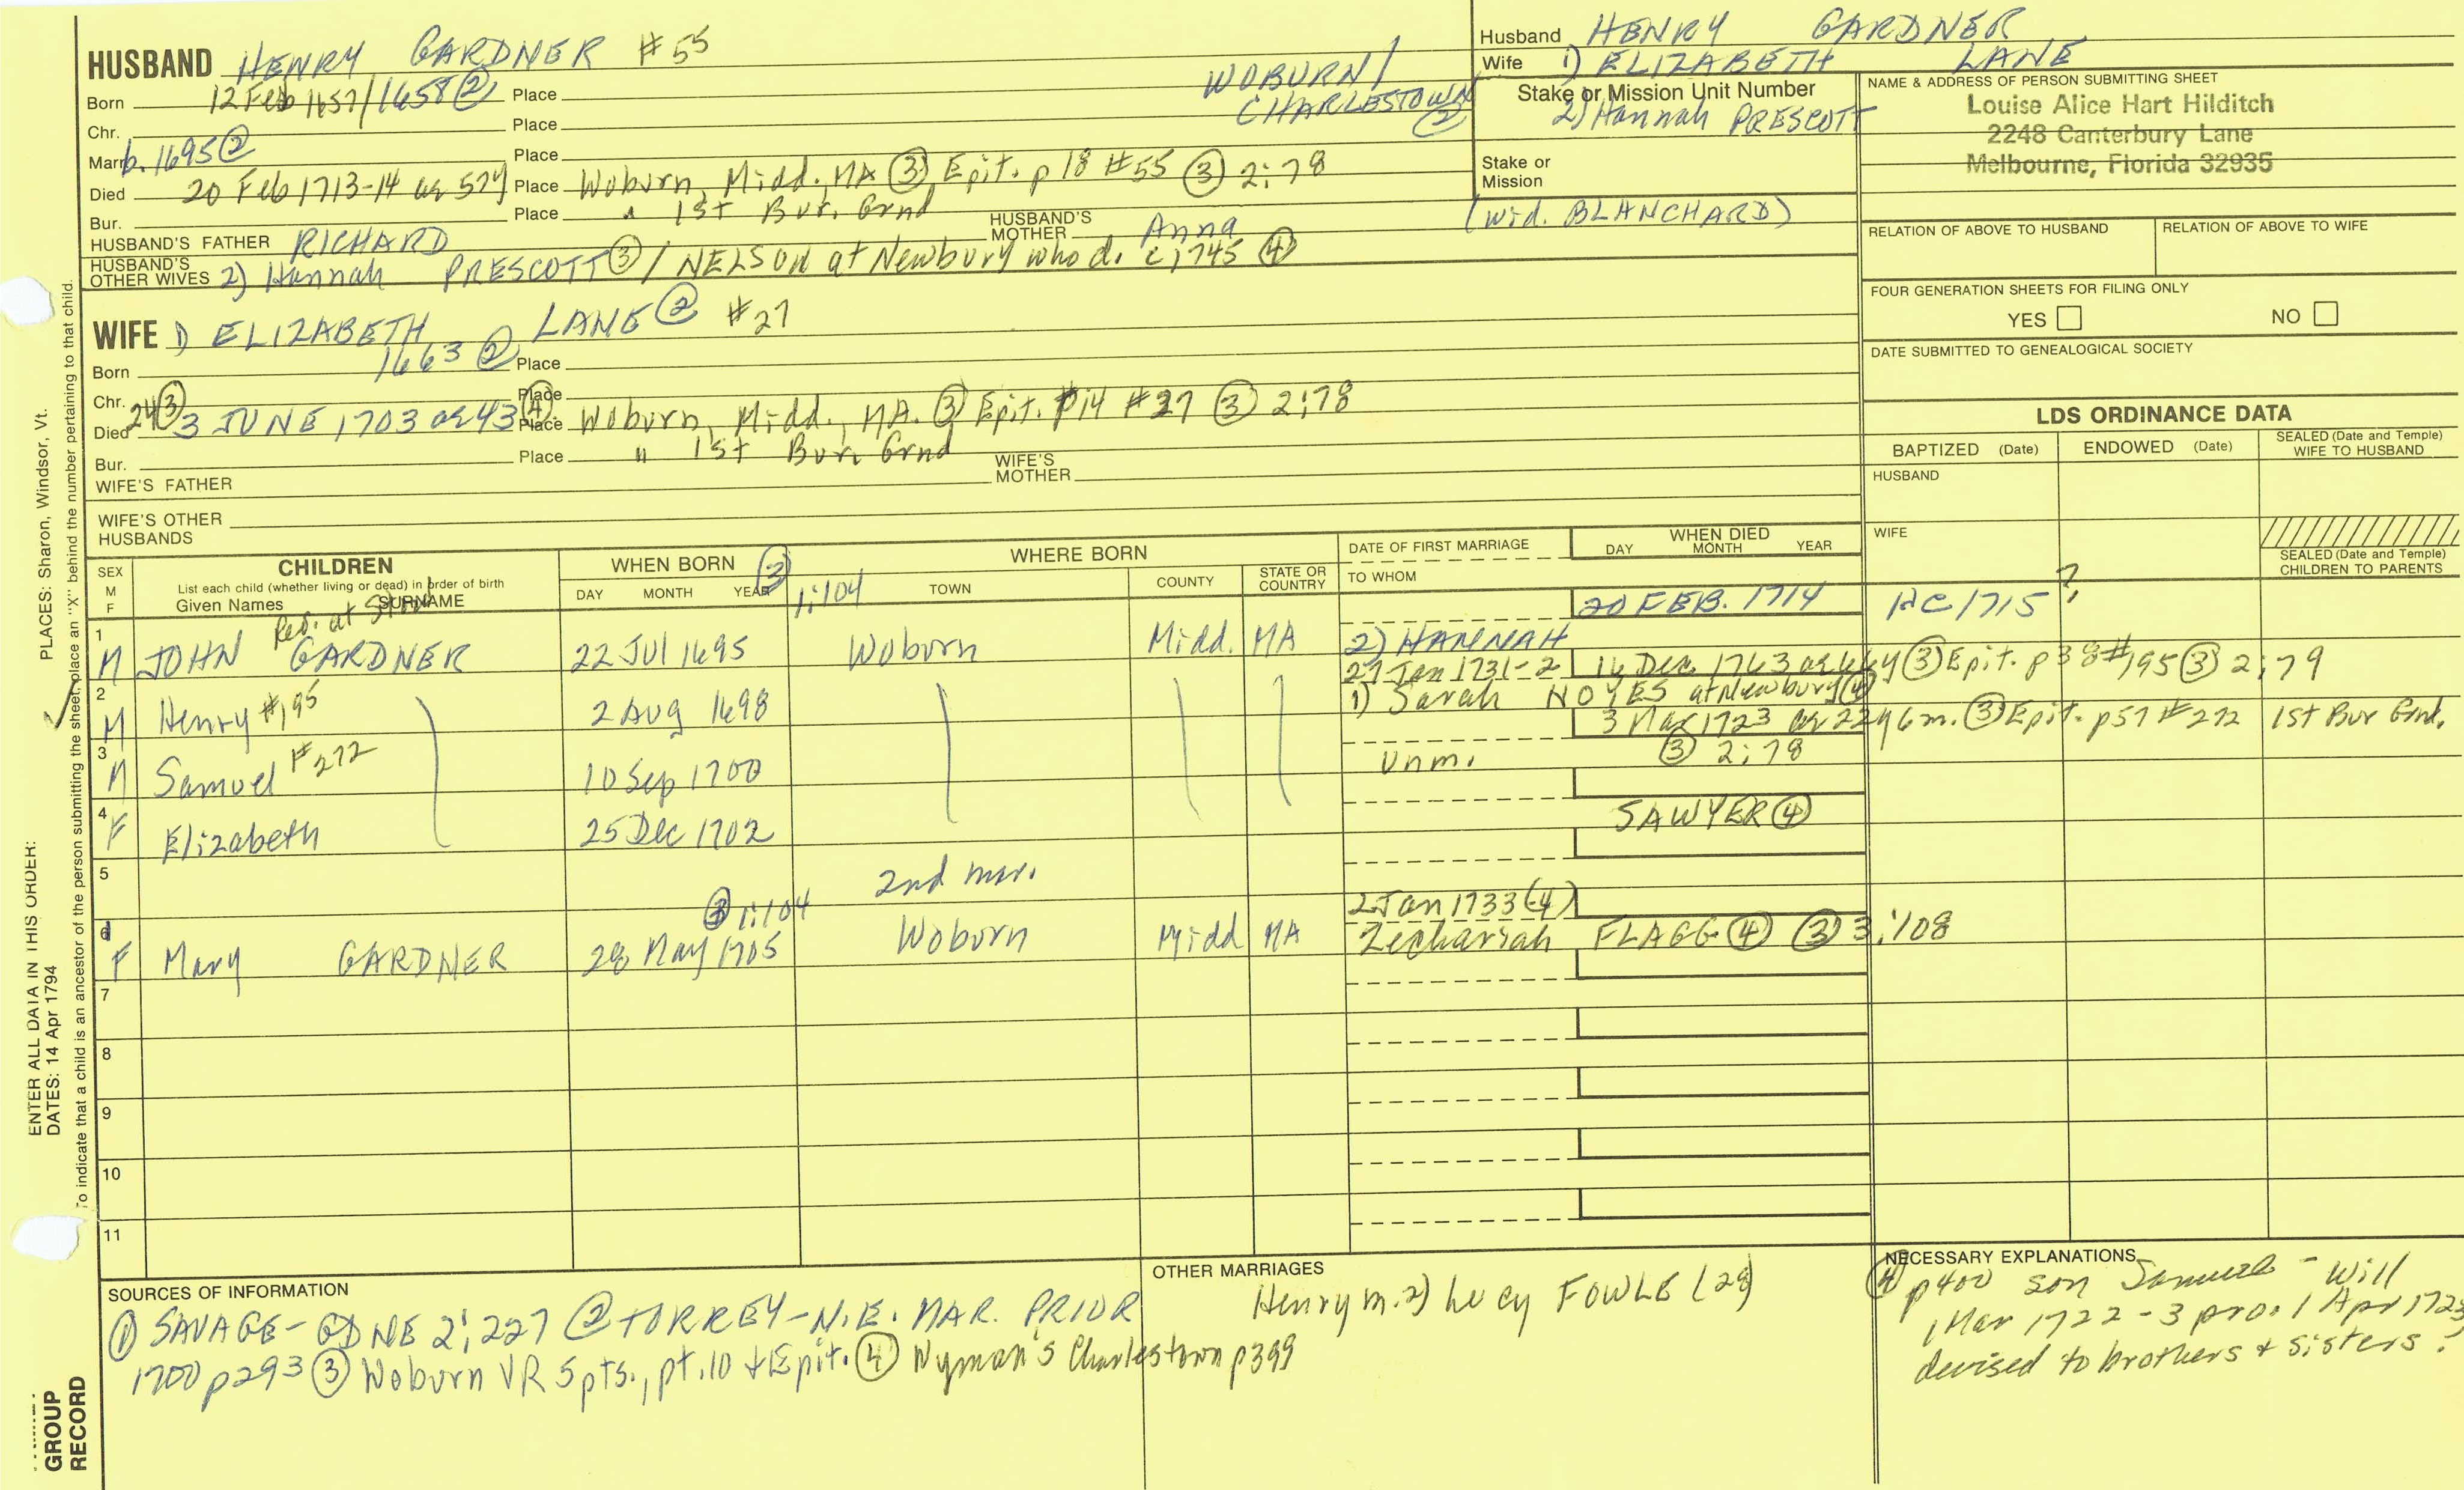 HUSBAND HENRY GARDNER #55
Born 12 Feb 1657/1658 ② Place WOBURN/
CHARLESTOWN ②
Chr. Place
Marr b. 1695 ② Place
Died 20 Feb 1713-14 ae 57y Place Woburn, Midd., MA ③ Epit. p 18 #55 ③ 2:78
Bur. Place " 1st Bur. Grnd
HUSBAND'S FATHER RICHARD HUSBAND'S MOTHER Anna (wid. BLANCHARD)
HUSBAND'S OTHER WIVES 2) Hannah PRESCOTT ③ / NELSON at Newbury who d. 1745 ④
WIFE 1) ELIZABETH LANE ② #27
Born 1663 ② Place
Chr. Place
Died 24 ③ 3 JUNE 1703 ae 43 ④ Place Woburn, Midd., MA. ③ Epit. p14 #27 ③ 2:78
Bur. Place " 1st Bur. Grnd
WIFE'S FATHER WIFE'S MOTHER
WIFE'S OTHER HUSBANDS
Husband HENRY GARDNER
Wife 1) ELIZABETH LANE
Stake or Mission Unit Number
2) Hannah PRESCOTT
Stake or Mission
NAME & ADDRESS OF PERSON SUBMITTING SHEET
Louise Alice Hart Hilditch
2248 Canterbury Lane
Melbourne, Florida 32935
RELATION OF ABOVE TO HUSBAND RELATION OF ABOVE TO WIFE
FOUR GENERATION SHEETS FOR FILING ONLY
YES NO
DATE SUBMITTED TO GENEALOGICAL SOCIETY
LDS ORDINANCE DATA
BAPTIZED (Date) ENDOWED (Date) SEALED (Date and Temple) WIFE TO HUSBAND
HUSBAND
WIFE
SEALED (Date and Temple) CHILDREN TO PARENTS
SEX M F
CHILDREN
List each child (whether living or dead) in order of birth
Given Names SURNAME
WHEN BORN ③
DAY MONTH YEAR 1:104
WHERE BORN
TOWN COUNTY STATE OR COUNTRY
DATE OF FIRST MARRIAGE
TO WHOM
WHEN DIED
DAY MONTH YEAR
Res. at
1 M JOHN GARDNER 22 Jul 1695 Woburn Midd. MA 2) HANNAH 20 FEB. 1714 1715?
2 M Henry #195 2 Aug 1698 27 Jan 1731-2 14 Dec. 1763 ③ Epit. p38 #195 ③ 2:79
1) Sarah NOYES at Newbury ④
3 M Samuel #272 10 Sep 1700 Unm. 3 Mar 1723 ae 22y 6m. ③ Epit. p57 #272 1st Bur Grnd.
③ 2:78
4 F Elizabeth 25 Dec 1702 SAWYER ④
5 2nd mar.
③ 1:104
6 F Mary GARDNER 28 May 1705 Woburn Midd MA 2 Jan 1733 (4)
Zechariah FLAGG ④ ③ 3:108
7
8
9
10
11
SOURCES OF INFORMATION
① SAVAGE - GDNE 2:227 ② TORREY - N.E. MAR. PRIOR
1700 p293 ③ Woburn VR 5 pts., pt. 10 + Epit. ④ Wyman's Charlestown p399
OTHER MARRIAGES
Henry m. 2) Lucy FOWLE (28)
NECESSARY EXPLANATIONS
④ p400 son Samuel - Will
1 Mar 1722-3 pro. 1 Apr 1723
devised to brothers & sisters?
PLACES: Sharon, Windsor, Vt.
To indicate that a child is an ancestor of the person submitting the sheet, place an "X" behind the number pertaining to that child.
ENTER ALL DATA IN THIS ORDER:
DATES: 14 Apr 1794
GROUP
RECORD